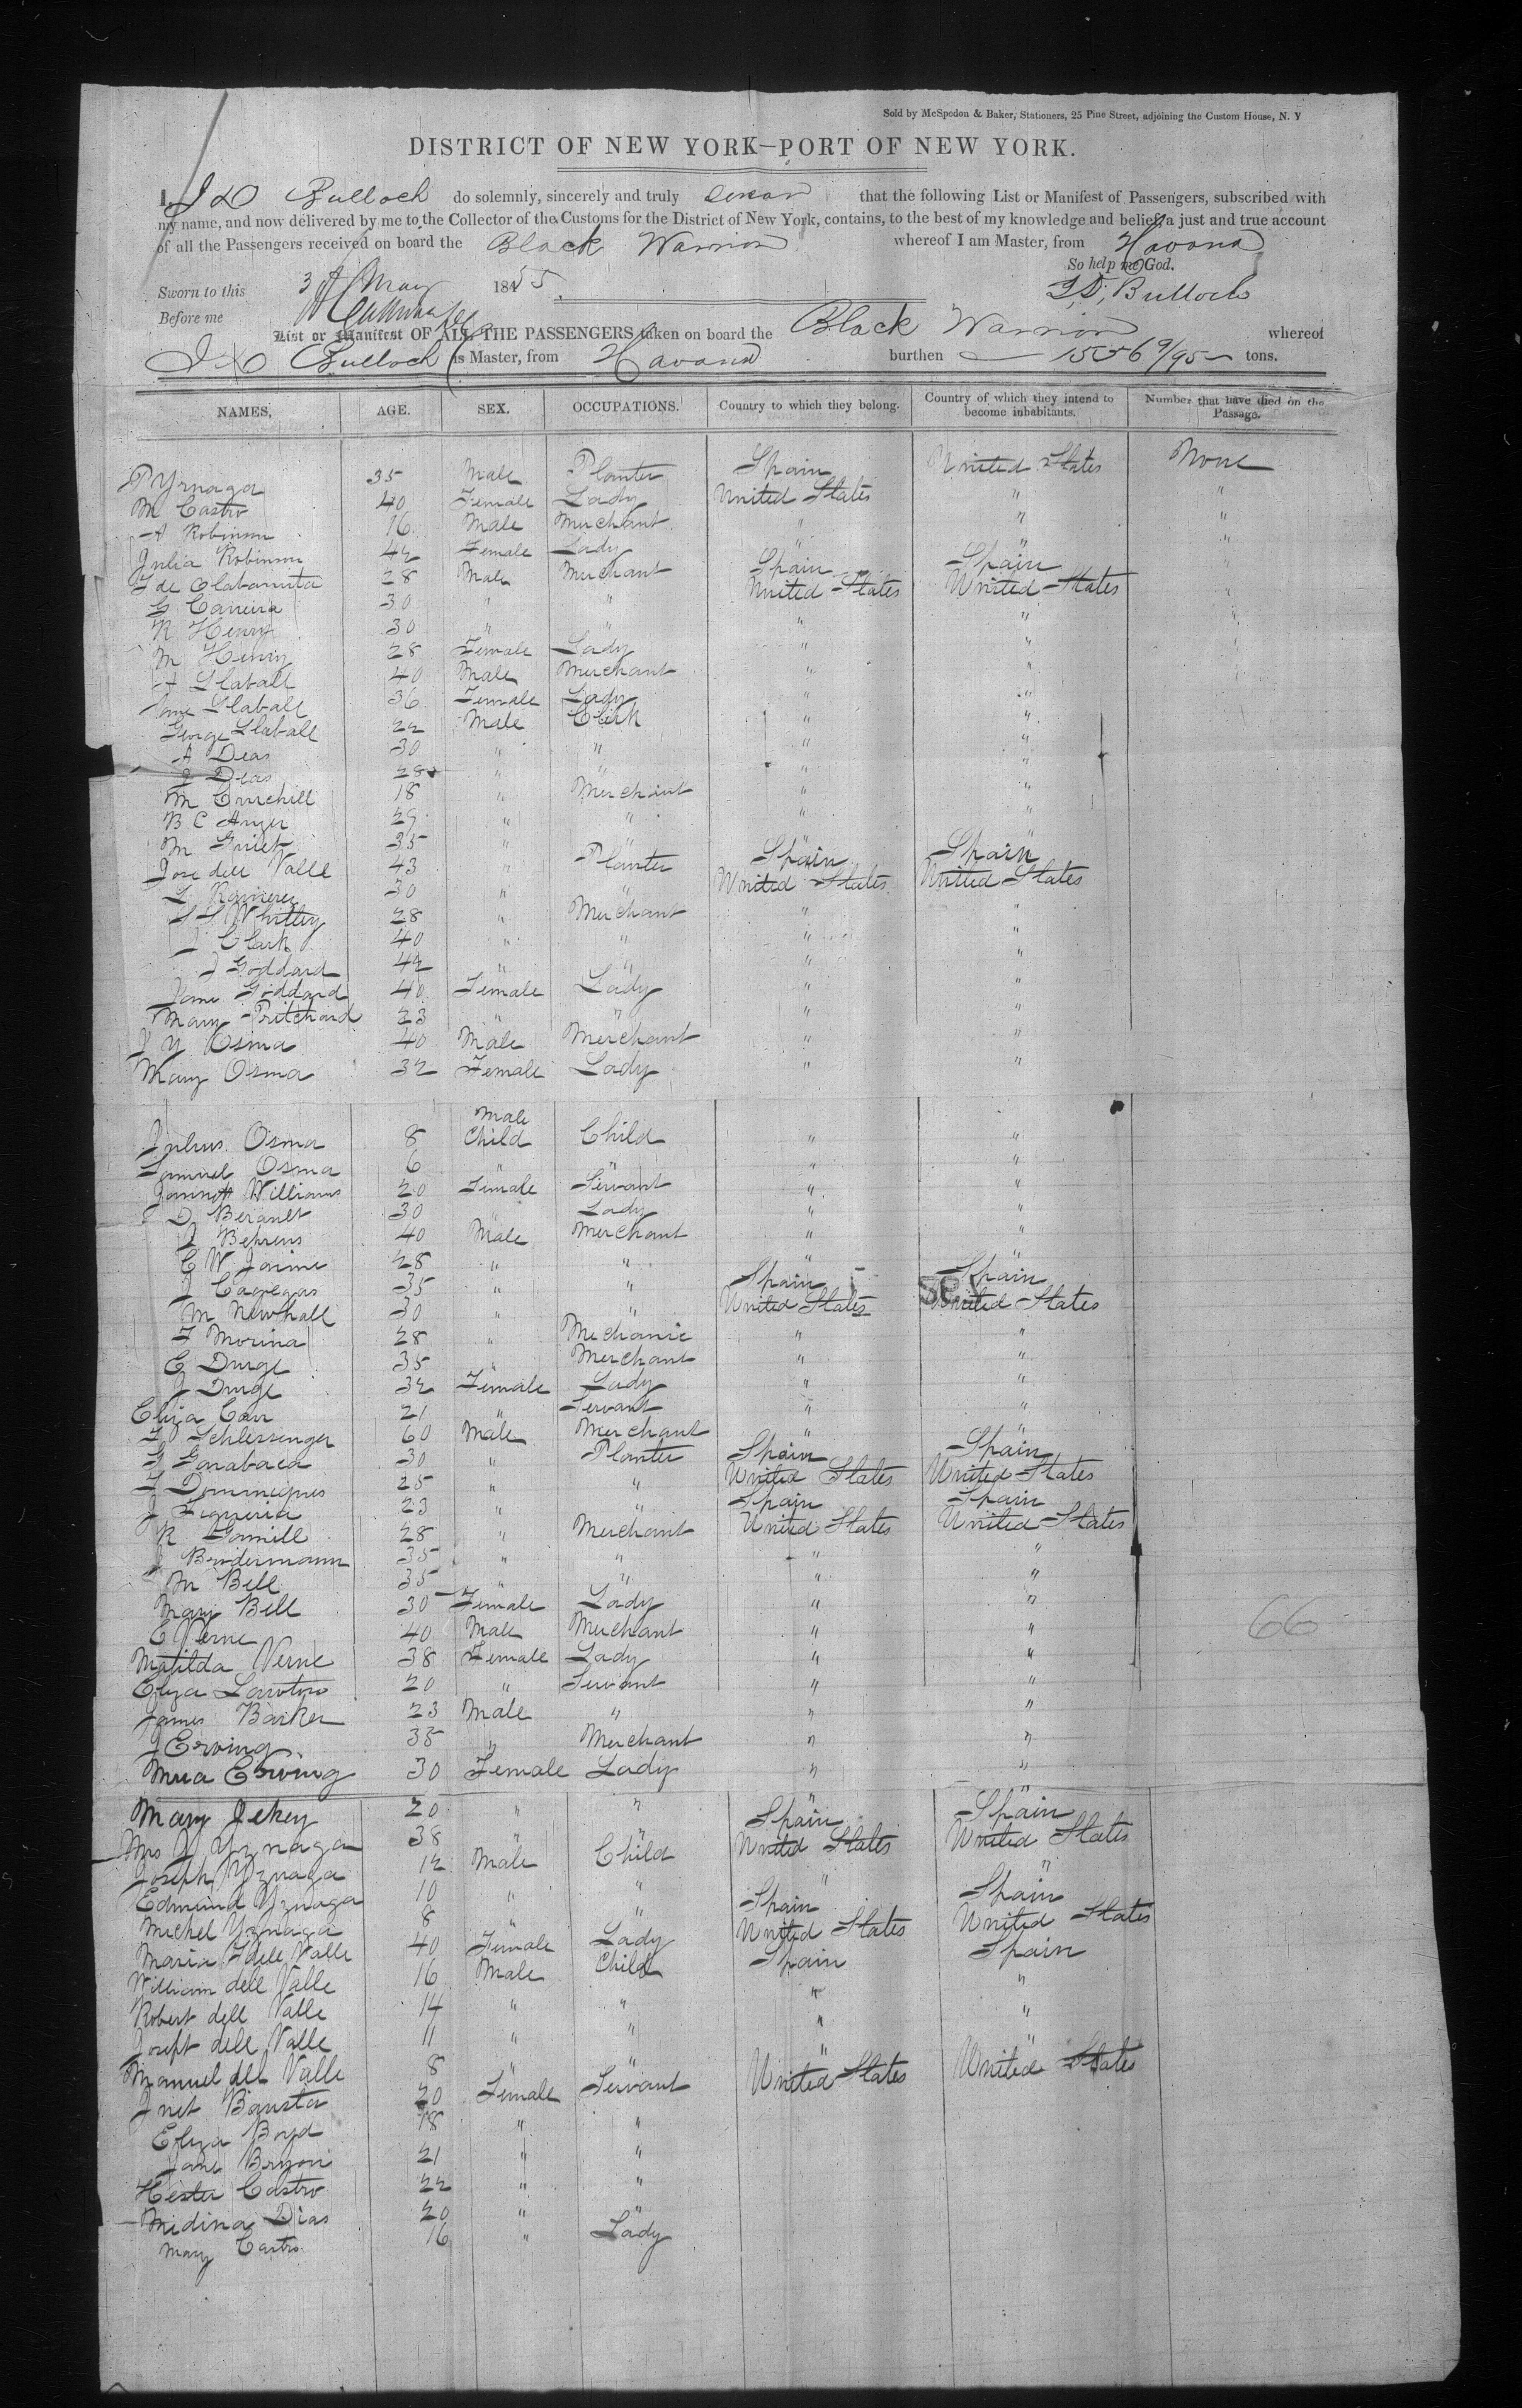 Sold by McSpedon & Baker, Stationers, 25 Pine Street, adjoining the Custom House, N. Y
DISTRICT OF NEW YORK—PORT OF NEW YORK.
I, J D Bulloch do solemnly, sincerely and truly swear that the following List or Manifest of Passengers, subscribed with
my name, and now delivered by me to the Collector of the Customs for the District of New York, contains, to the best of my knowledge and belief, a just and true account
of all the Passengers received on board the Black Warrior whereof I am Master, from Havana
So help me God.
Sworn to this 3 May 1855
J D, Bulloch
Before me
List or Manifest OF ALL THE PASSENGERS taken on board the Black Warrior whereof
J D Bulloch is Master, from Havana burthen 1556 9/95 tons.
NAMES, AGE. SEX. OCCUPATIONS. Country to which they belong. Country of which they intend to become inhabitants. Number that have died on the Passage.
P Yznaga 35 Male Planter Spain United States None
M Castro 40 Female Lady United States " "
A Robinson 16 Male Merchant " " "
Julia Robinson 42 Female Lady " " "
28 Male Merchant Spain Spain "
G Carreira 30 " " United States United States "
R Henry 30 " " " " "
M Henry 28 Female Lady " " "
40 Male Merchant " "
36 Female Lady " "
George 22 Male Clerk " "
A Deas 30 " " " "
J Deas 28 " " " "
M Churchill 18 " Merchant " "
B C 29 " " " "
M 35 " " " "
Jose dell Valle 43 " Planter Spain Spain
L Ramirez 30 " " United States United States
S S Whitley 28 " Merchant " "
J Clark 40 " " " "
J Goddard 42 " " " "
Jane Goddard 40 Female Lady " "
Mary Pritchard 23 " " " "
J Y Osma 40 Male Merchant " "
Mary Osma 32 Female Lady " "
Julius Osma 8 Male Child Child " "
Samuel Osma 6 " " " "
Williams 20 Female Servant " "
D Berault 30 " Lady " "
J Behrens 40 Male Merchant " "
C W Jaime 28 " " " "
J 35 " " Spain Spain
M Newhall 30 " " United States United States
F Morina 28 " Mechanic " "
C Durge 35 " Merchant " "
J Durge 32 Female Lady " "
Eliza Carr 21 " Servant " "
L Schlessenger 60 Male Merchant " "
G 30 " Planter Spain Spain
L Dominiques 25 " " United States United States
J 23 " " Spain Spain
R 28 " Merchant United States United States
J Brudermann 35 " " " "
M Bell 35 " " " "
Mary Bell 30 Female Lady " "
C Verne 40 Male Merchant " "
66
Matilda Verne 38 Female Lady " "
Eliza 20 " Servant " "
James Barker 23 Male " " "
J Erving 35 " Merchant " "
Erving 30 Female Lady " "
Mary Jekey 20 " " " "
Mrs Y Yznaga 38 " " Spain Spain
Joseph Yznaga 12 Male Child United States United States
Edmund Yznaga 10 " " " "
Michel Yznaga 8 " " Spain Spain
Maria J dell Valle 40 Female Lady United States United States
William dell Valle 16 Male Child Spain Spain
Robert dell Valle 14 " " " "
Josept dell Valle 11 " " " "
Manuel dell Valle 8 " " " "
20 Female Servant United States United States
Eliza Boyd 18 " "
Jane 21 " "
Hester Castro 22 " "
Midina Dias 20 " "
Mary Castro 16 " Lady